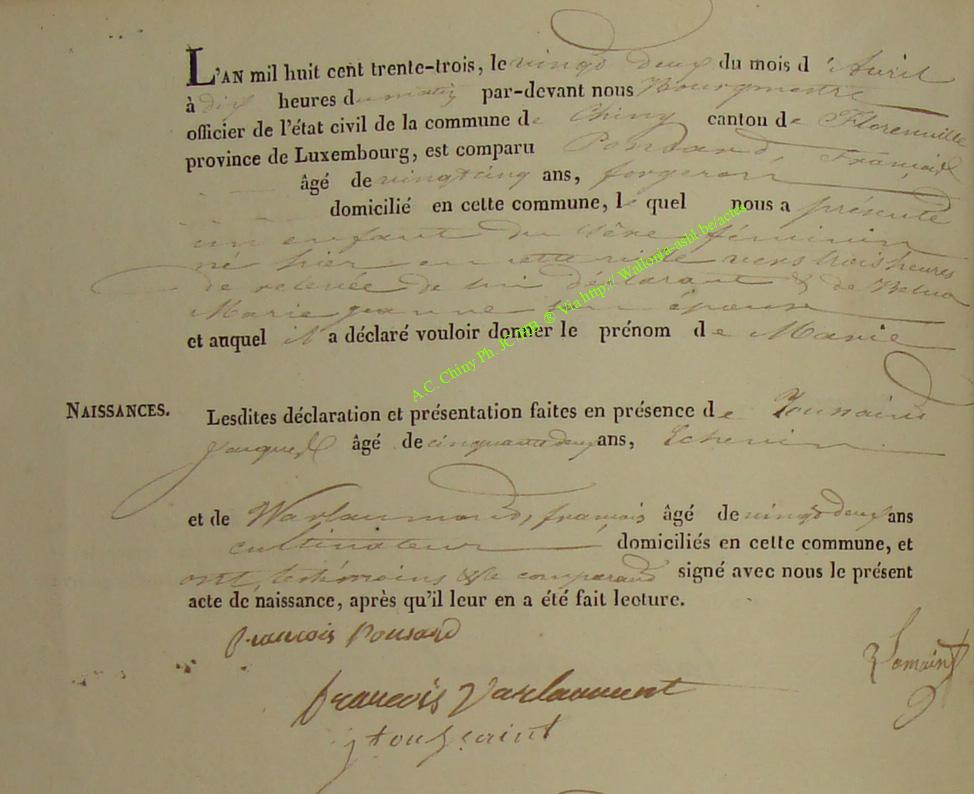 L'AN mil huit cent trente-trois, le vingt deux du mois d'Avril
à dix heures du matin par-devant nous Bourgmestre
officier de l'état civil de la commune de Chiny canton de Florenville
province de Luxembourg, est comparu Ponsard, François
âgé de vingt cinq ans, forgeron
domicilié en cette commune, lequel nous a présenté
un enfant du sexe féminin
né hier en cette ville vers trois heures
de relevée de lui déclarant & de
Marie jeanne son épouse
et auquel il a déclaré vouloir donner le prénom de Marie
NAISSANCES.
Lesdites déclaration et présentation faites en présence de Toussaint
Jacques âgé de cinquante deux ans, Echevin
et de Warlaumont, françois âgé de vingt deux ans
cultivateur domiciliés en cette commune, et
ont, les témoins & le comparant signé avec nous le présent
acte de naissance, après qu'il leur en a été fait lecture.
françois Ponsard
françois Varlaumont
j toussaint
A.C. Chiny Ph. ® Via http:// Wallonia-asbl.be/actes